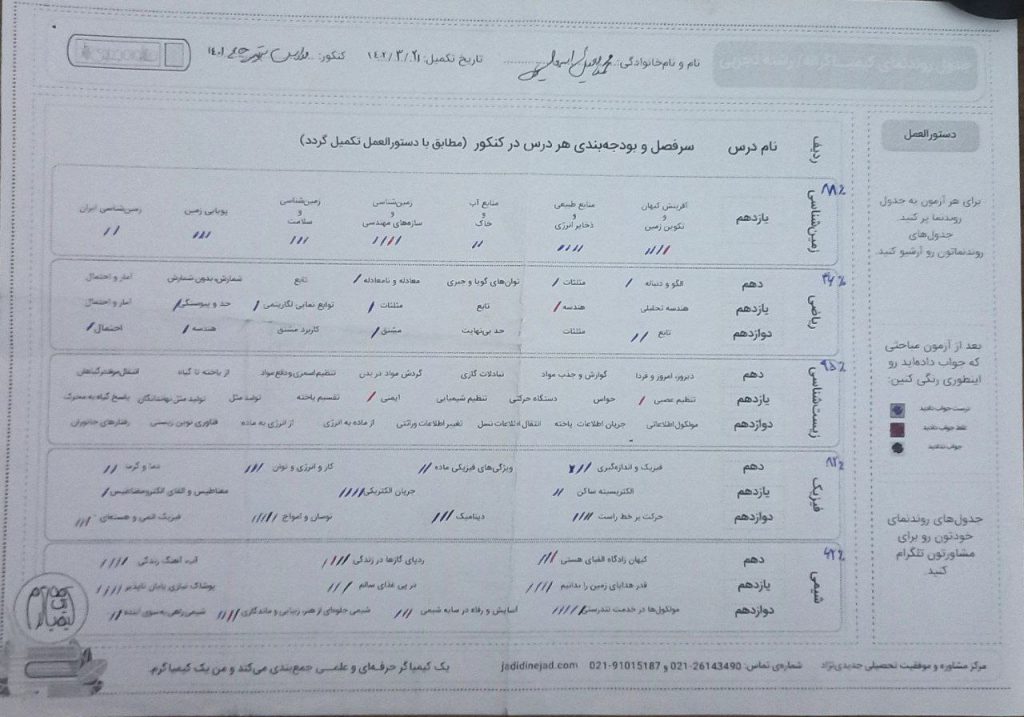 جدول روندنمای کیمیاگران / رشته تجربی
نام و نام‌خانوادگی:
تاریخ تکمیل: ۱۴۰۲/۳/۲۱
کنکور:
دستورالعمل
برای هر آزمون یه جدول
روندنما پر کنید.
جدول‌های
روندنماتون رو آرشیو کنید.
بعد از آزمون مباحثی
که جواب داده‌اید رو
اینطوری رنگی کنین:
درست جواب دادید
غلط جواب دادید
جواب ندادید
جدول‌های روندنمای
خودتون رو برای
مشاورتون تلگرام
کنید.
ردیف نام درس سرفصل و بودجه‌بندی هر درس در کنکور (مطابق با دستورالعمل تکمیل گردد)
زمین‌شناسی ۸۸٪
یازدهم آفرینش کیهان و تکوین زمین منابع طبیعی و ذخایر انرژی منابع آب و خاک زمین‌شناسی و سازه‌های مهندسی زمین‌شناسی و سلامت پویایی زمین زمین‌شناسی ایران
ریاضی
دهم الگو و دنباله مثلثات توان‌های گویا و جبری معادله و نامعادله تابع شمارش، بدون شمارش آمار و احتمال
یازدهم هندسه تحلیلی هندسه تابع مثلثات توابع نمایی لگاریتمی حد و پیوستگی آمار و احتمال
دوازدهم تابع مثلثات حد بی‌نهایت مشتق کاربرد مشتق هندسه احتمال
زیست‌شناسی ۹۵٪
دهم دیروز، امروز و فردا گوارش و جذب مواد تبادلات گازی گردش مواد در بدن تنظیم اسمزی و دفع مواد از یاخته تا گیاه انتقال مواد در گیاهان
یازدهم تنظیم عصبی حواس دستگاه حرکتی تنظیم شیمیایی ایمنی تقسیم یاخته تولید مثل تولید مثل نهاندانگان پاسخ گیاه به محرک
دوازدهم مولکول اطلاعاتی جریان اطلاعات یاخته انتقال اطلاعات نسل تغییر اطلاعات وراثتی از ماده به انرژی از انرژی به ماده فناوری نوین زیستی رفتارهای جانوران
فیزیک ۸۲٪
دهم فیزیک و اندازه‌گیری ویژگی‌های فیزیکی ماده کار و انرژی و توان دما و گرما
یازدهم الکتریسیته ساکن جریان الکتریکی مغناطیس و القای الکترومغناطیس
دوازدهم حرکت بر خط راست دینامیک نوسان و امواج فیزیک اتمی و هسته‌ای
شیمی
دهم کیهان زادگاه الفبای هستی ردپای گازها در زندگی آب، آهنگ زندگی
یازدهم قدر هدایای زمین را بدانیم در پی غذای سالم پوشاک نیازی پایان ناپذیر
دوازدهم مولکول‌ها در خدمت تندرستی آسایش و رفاه در سایه شیمی شیمی جلوه‌ای از هنر، زیبایی و ماندگاری شیمی راهی به سوی آینده
مرکز مشاوره و موفقیت تحصیلی جدیدی‌نژاد شماره‌ی تماس: 26143490-021 و 91015187-021 jadidinejad.com
یک کیمیاگر حرفه‌ای و علمی جمع‌بندی می‌کند و من یک کیمیاگرم.